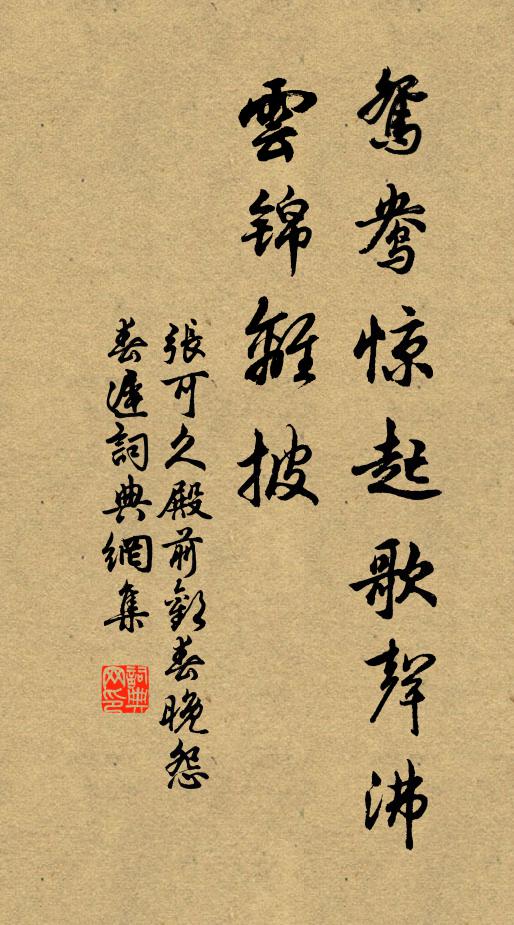 鴛鴦惊起歌聲沸
雲锦離披
張可久殿前歡春晚怨
春遲詞典網集
詞典网印